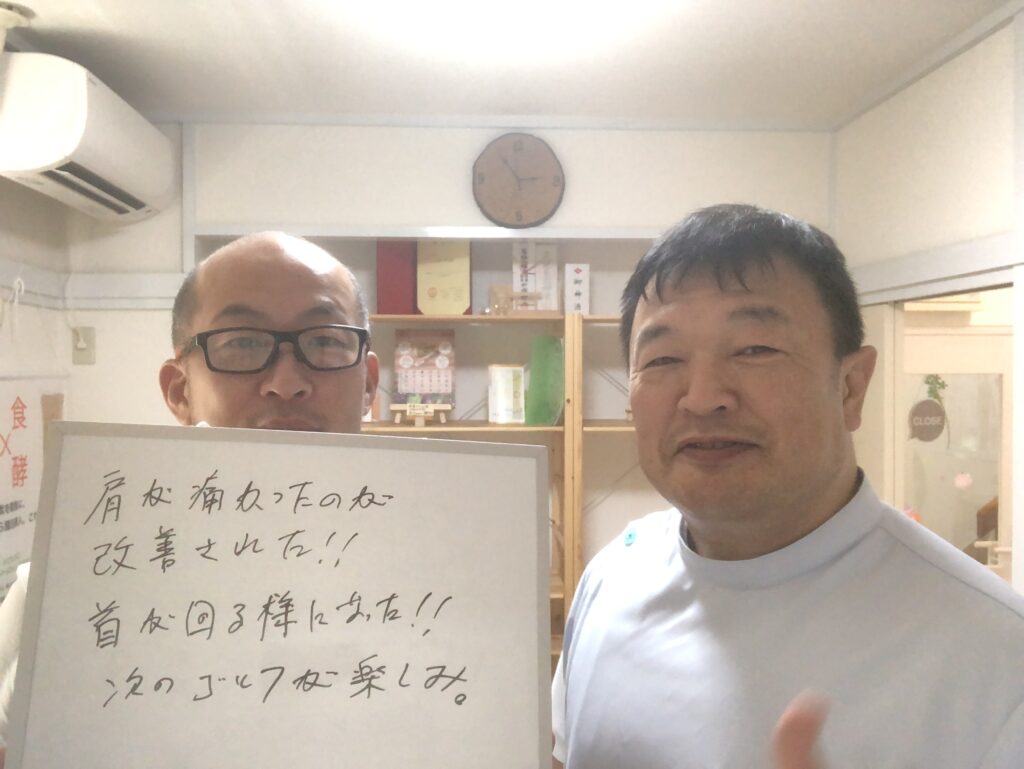 肩が痛かったのが
改善された!!
首が回る様になった!!
次のゴルフが楽しみ。
食
×
酵
御神酒
CLOSE
12
3
6
9